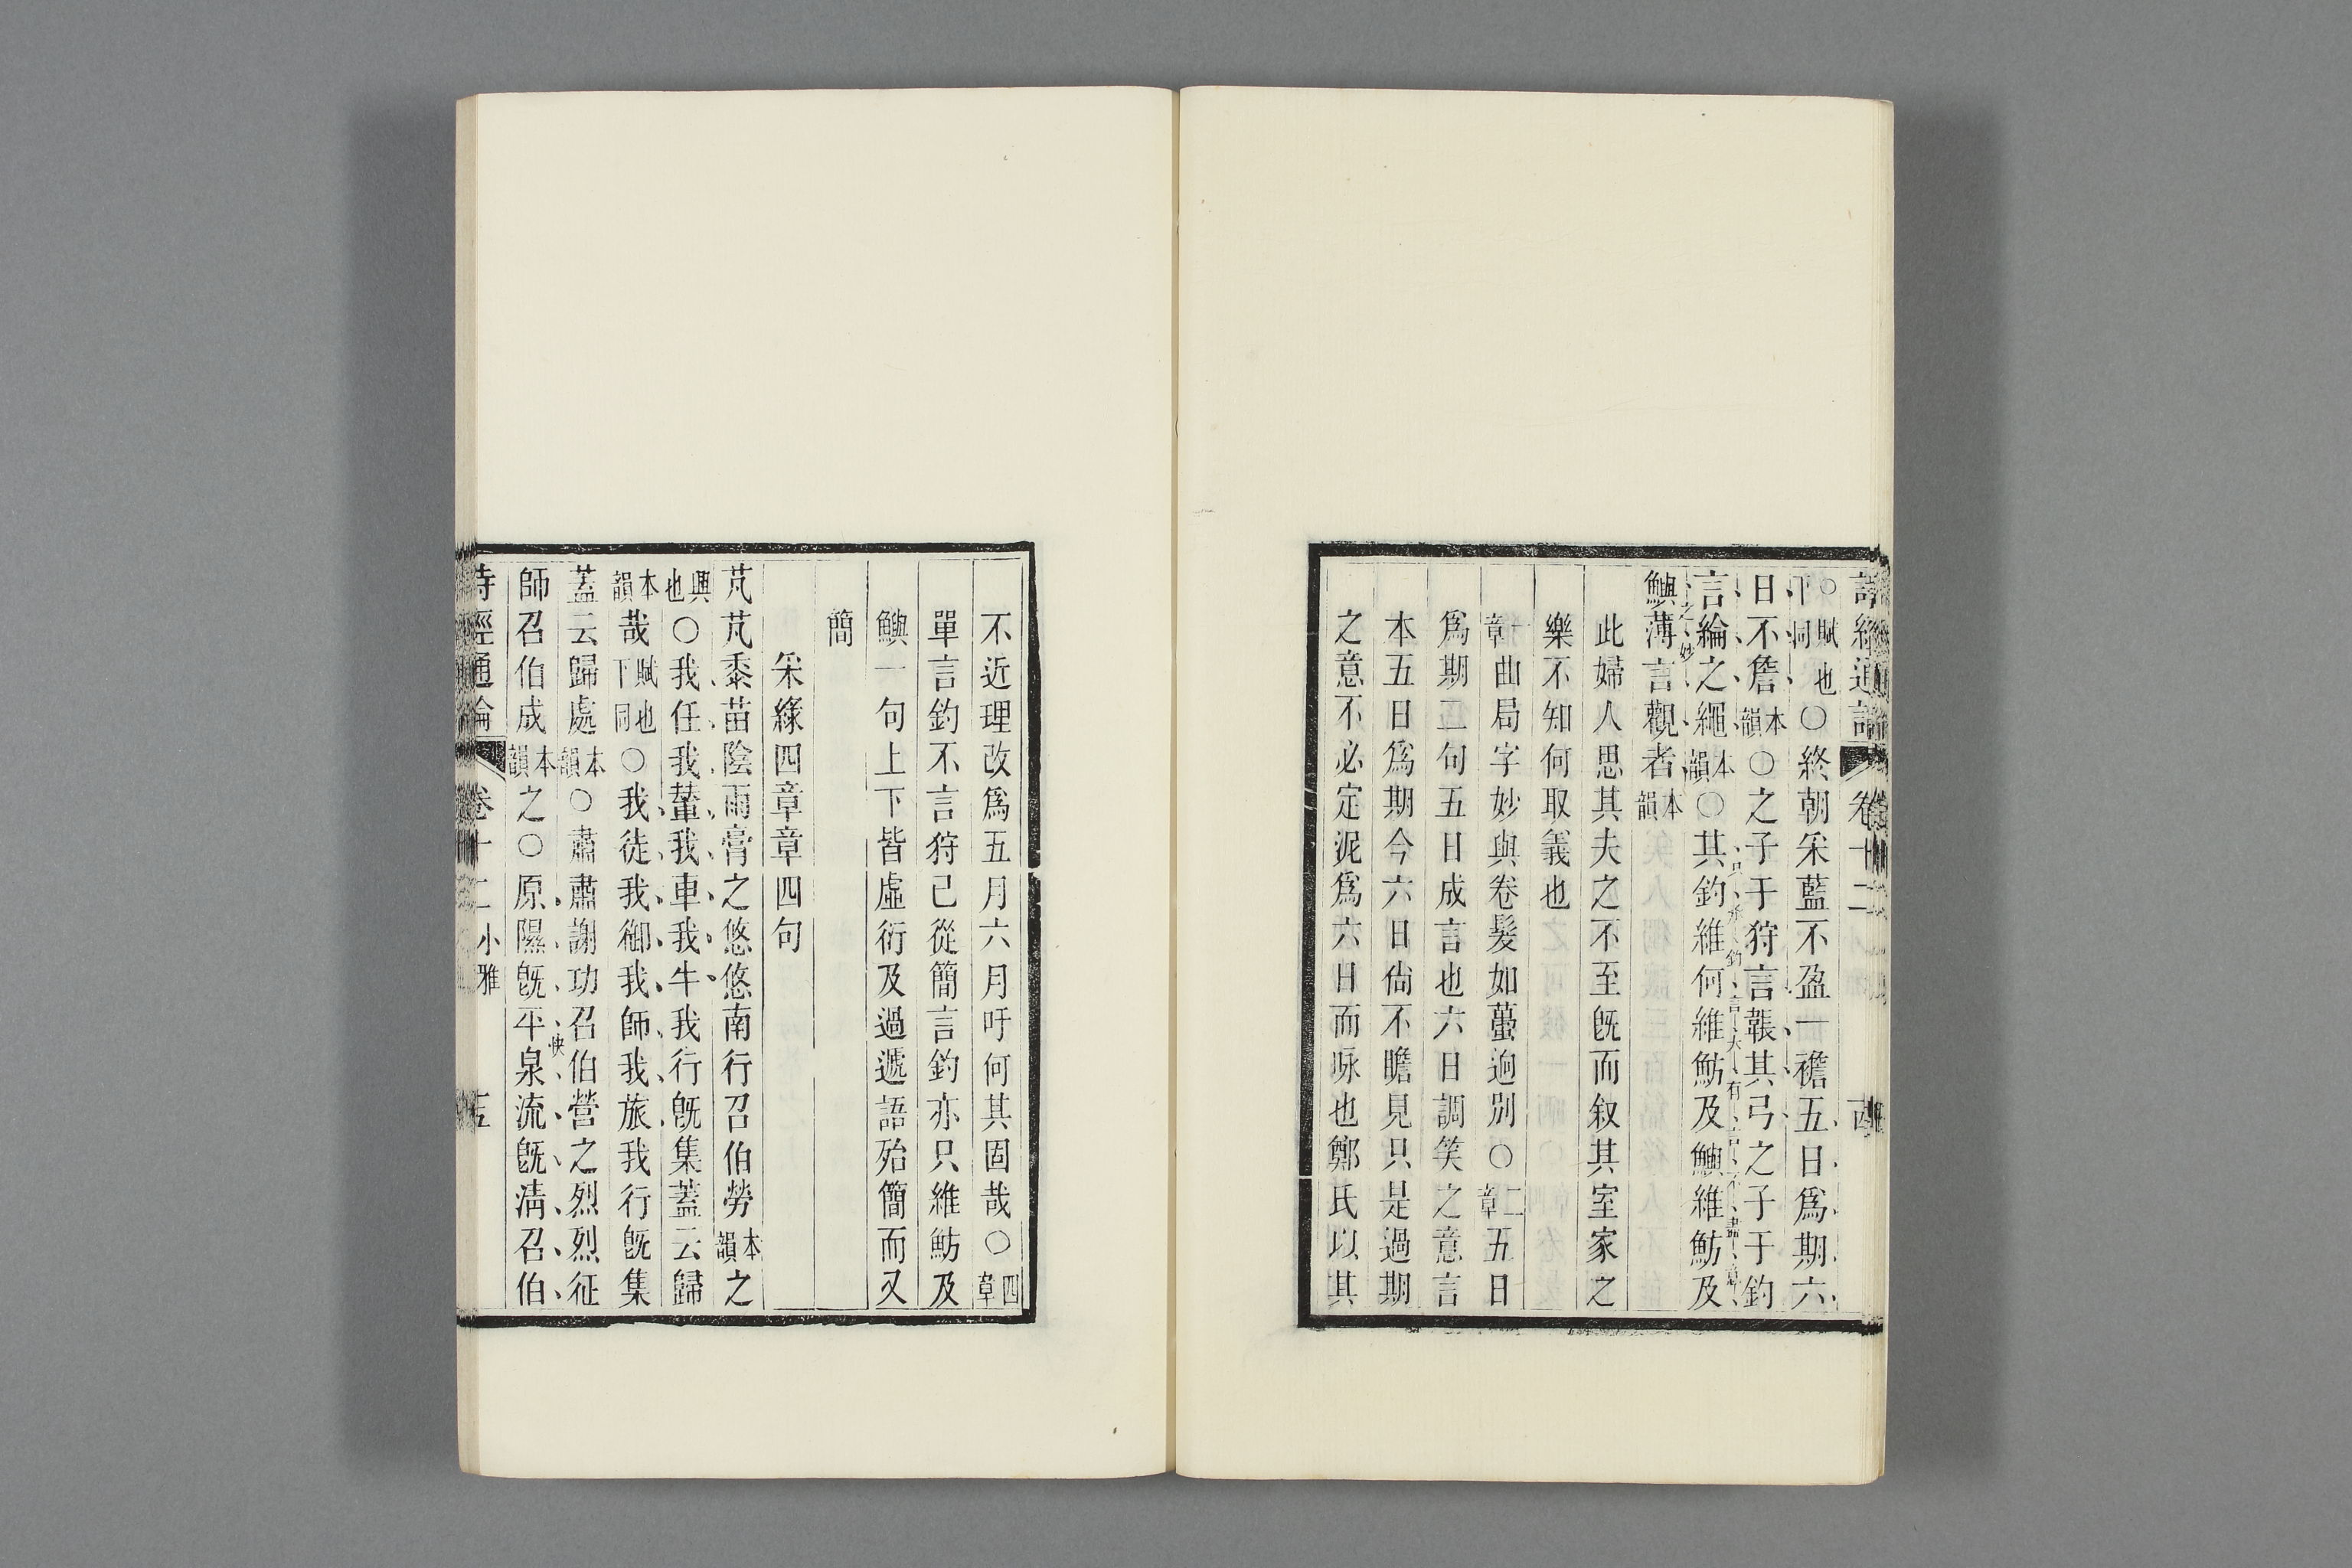 詩經通論 卷十二
○賦也下同○終朝采藍不盈一襜五日爲期六
日不詹本韻○之子于狩言韔其弓之子于釣
言綸之繩本韻○其釣維何維魴及鱮維魴及
鱮薄言觀者本韻
此婦人思其夫之不至旣而叙其室家之
樂不知何取義也
一章曲局字妙與卷髮如蠆逈別○二章五日
爲期二句五日成言也六日調笑之意言
本五日爲期今六日尙不瞻見只是過期
之意不必定泥爲六日而咏也鄭氏以其
不近理改爲五月六月吁何其固哉○四章
單言釣不言狩已從簡言釣亦只維魴及
鱮一句上下皆虛衍及過遞語殆簡而又
簡
采綠四章章四句
芃芃黍苗陰雨膏之悠悠南行召伯勞本韻之
興也○我任我輦我車我牛我行旣集蓋云歸
本韻哉賦也下同○我徒我御我師我旅我行旣集
蓋云歸處本韻○肅肅謝功召伯營之烈烈征
師召伯成本韻之○原隰旣平泉流旣淸召伯
快
詩經通論 卷十二 小雅